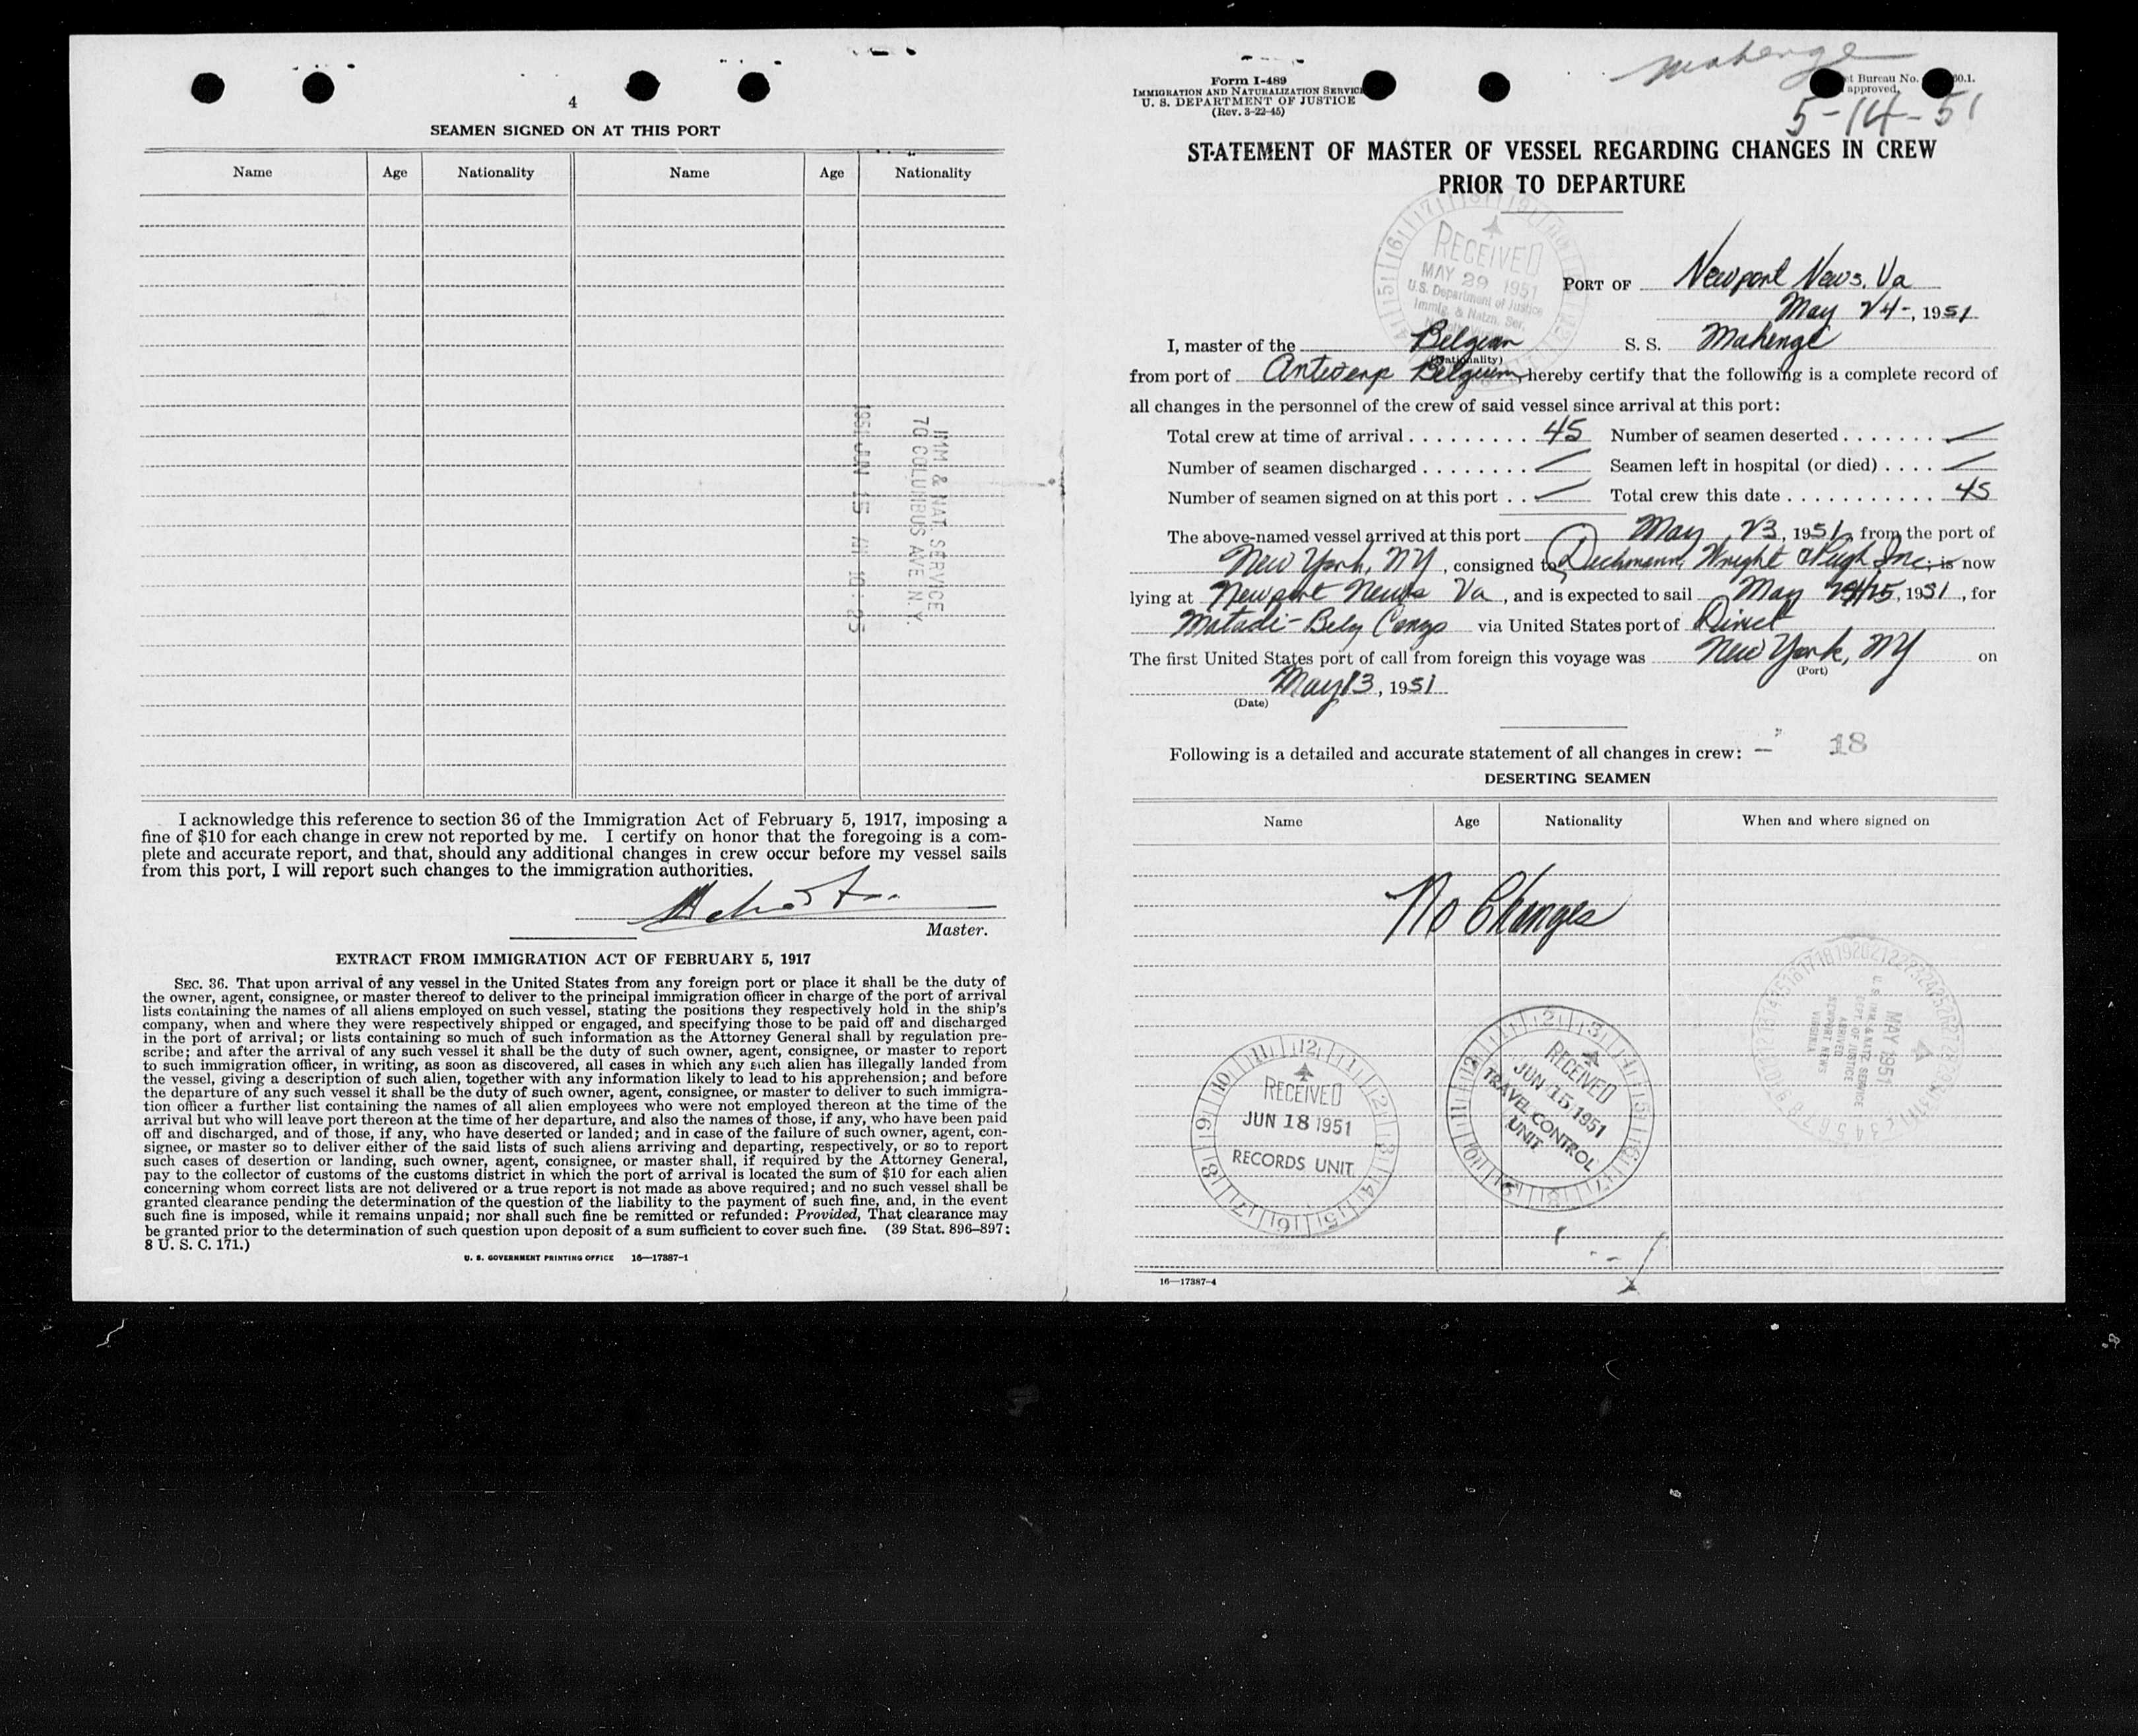 4
SEAMEN SIGNED ON AT THIS PORT
Name Age Nationality Name Age Nationality
IMM. & NAT. SERVICE
70 COLUMBUS AVE. N.Y.
1951 JUN 15 AM 10:
I acknowledge this reference to section 36 of the Immigration Act of February 5, 1917, imposing a
fine of $10 for each change in crew not reported by me. I certify on honor that the foregoing is a com-
plete and accurate report, and that, should any additional changes in crew occur before my vessel sails
from this port, I will report such changes to the immigration authorities.
Master.
EXTRACT FROM IMMIGRATION ACT OF FEBRUARY 5, 1917
SEC. 36. That upon arrival of any vessel in the United States from any foreign port or place it shall be the duty of
the owner, agent, consignee, or master thereof to deliver to the principal immigration officer in charge of the port of arrival
lists containing the names of all aliens employed on such vessel, stating the positions they respectively hold in the ship's
company, when and where they were respectively shipped or engaged, and specifying those to be paid off and discharged
in the port of arrival; or lists containing so much of such information as the Attorney General shall by regulation pre-
scribe; and after the arrival of any such vessel it shall be the duty of such owner, agent, consignee, or master to report
to such immigration officer, in writing, as soon as discovered, all cases in which any such alien has illegally landed from
the vessel, giving a description of such alien, together with any information likely to lead to his apprehension; and before
the departure of any such vessel it shall be the duty of such owner, agent, consignee, or master to deliver to such immigra-
tion officer a further list containing the names of all alien employees who were not employed thereon at the time of the
arrival but who will leave port thereon at the time of her departure, and also the names of those, if any, who have been paid
off and discharged, and of those, if any, who have deserted or landed; and in case of the failure of such owner, agent, con-
signee, or master so to deliver either of the said lists of such aliens arriving and departing, respectively, or so to report
such cases of desertion or landing, such owner, agent, consignee, or master shall, if required by the Attorney General,
pay to the collector of customs of the customs district in which the port of arrival is located the sum of $10 for each alien
concerning whom correct lists are not delivered or a true report is not made as above required; and no such vessel shall be
granted clearance pending the determination of the question of the liability to the payment of such fine, and, in the event
such fine is imposed, while it remains unpaid; nor shall such fine be remitted or refunded: Provided, That clearance may
be granted prior to the determination of such question upon deposit of a sum sufficient to cover such fine. (39 Stat. 896–897;
8 U. S. C. 171.)
U. S. GOVERNMENT PRINTING OFFICE 16—17387-1
Mahenge
Form I-489
IMMIGRATION AND NATURALIZATION SERVICE
U. S. DEPARTMENT OF JUSTICE
(Rev. 3-22-45)
Bureau No.
approved.
5-14-51
STATEMENT OF MASTER OF VESSEL REGARDING CHANGES IN CREW
PRIOR TO DEPARTURE
RECEIVED
MAY 29 1951
U.S. Department of Justice
Immig. & Natzn. Ser.
PORT OF Newport News, Va
May 24-, 1951
I, master of the Belgian S. S. Mahenge
(Nationality)
from port of Antwerp Belgium, hereby certify that the following is a complete record of
all changes in the personnel of the crew of said vessel since arrival at this port:
Total crew at time of arrival . . . . . . . . . 45 Number of seamen deserted . . . . . . . —
Number of seamen discharged . . . . . . . . — Seamen left in hospital (or died) . . . . —
Number of seamen signed on at this port . . — Total crew this date . . . . . . . . . . . . 45
The above-named vessel arrived at this port May, 23, 1951, from the port of
New York, NY, consigned to Dechmann, Wright & Pugh Inc; is now
lying at Newport News Va, and is expected to sail May 25, 1951, for
Matadi - Belg Congo via United States port of Direct
The first United States port of call from foreign this voyage was New York, NY on
(Port)
May 13, 1951
(Date)
Following is a detailed and accurate statement of all changes in crew: — 18
DESERTING SEAMEN
Name Age Nationality When and where signed on
No Changes
U. S. IMM. & NATZ. SERVICE
DEPT. OF JUSTICE
MAY 1951
ARRIVED
NEWPORT NEWS
VIRGINIA
RECEIVED
JUN 18 1951
RECORDS UNIT
RECEIVED
JUN 15 1951
TRAVEL CONTROL
UNIT
16—17387-4